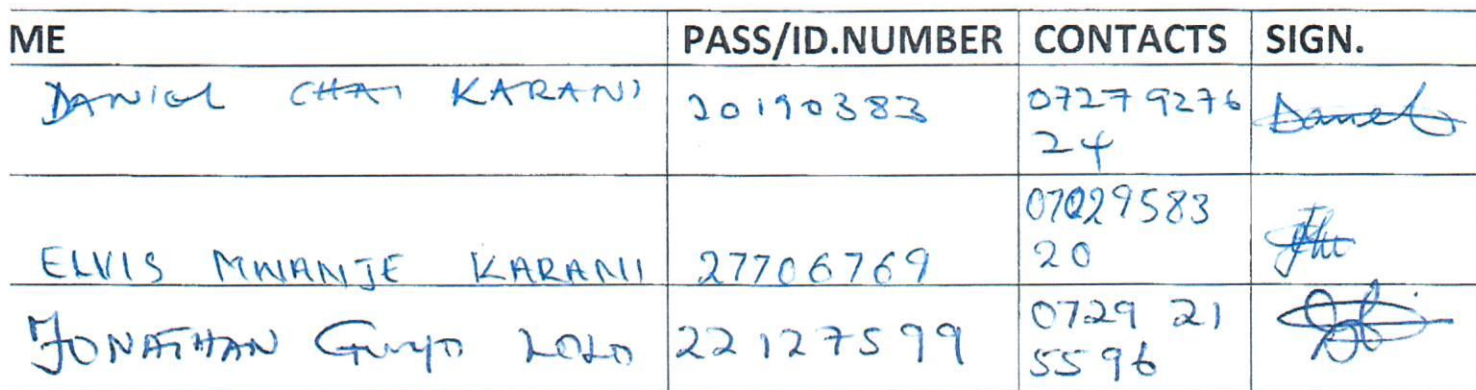 ME PASS/ID.NUMBER CONTACTS SIGN.
DANIEL CHAI KARANI 20190383 07279276
24
07029583
ELVIS MWANJE KARANI 27706769 20
JONATHAN GUYO 22127599 0729 21
5596